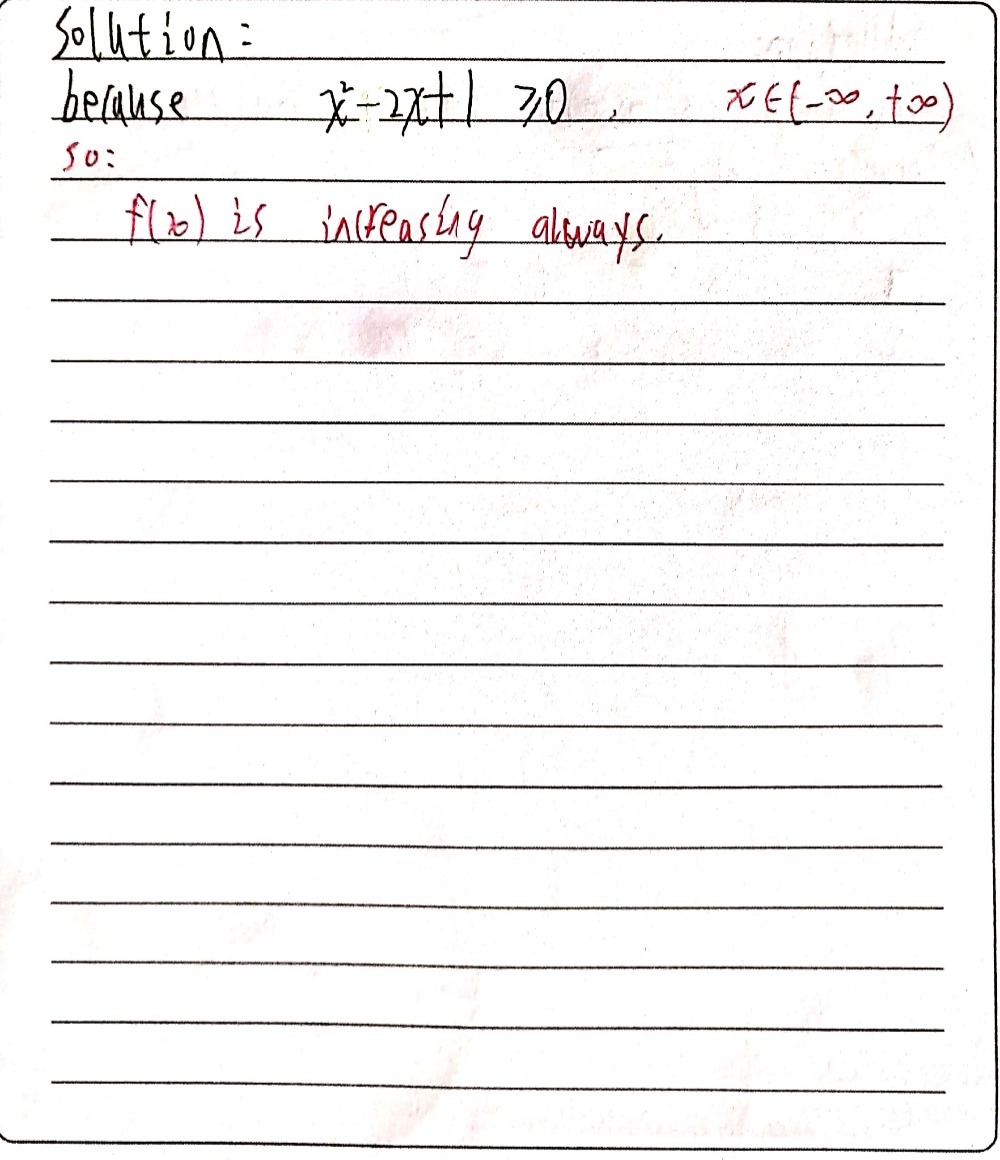 Solution:
because x²-2x+1 ⩾0, x∈(-∞,+∞)
so:
f(x) is increasing always.